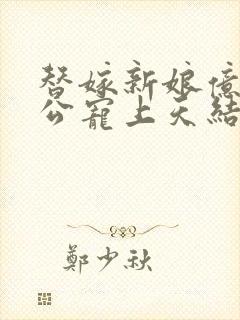 替嫁新娘億
公寵上天結
鄭少秋